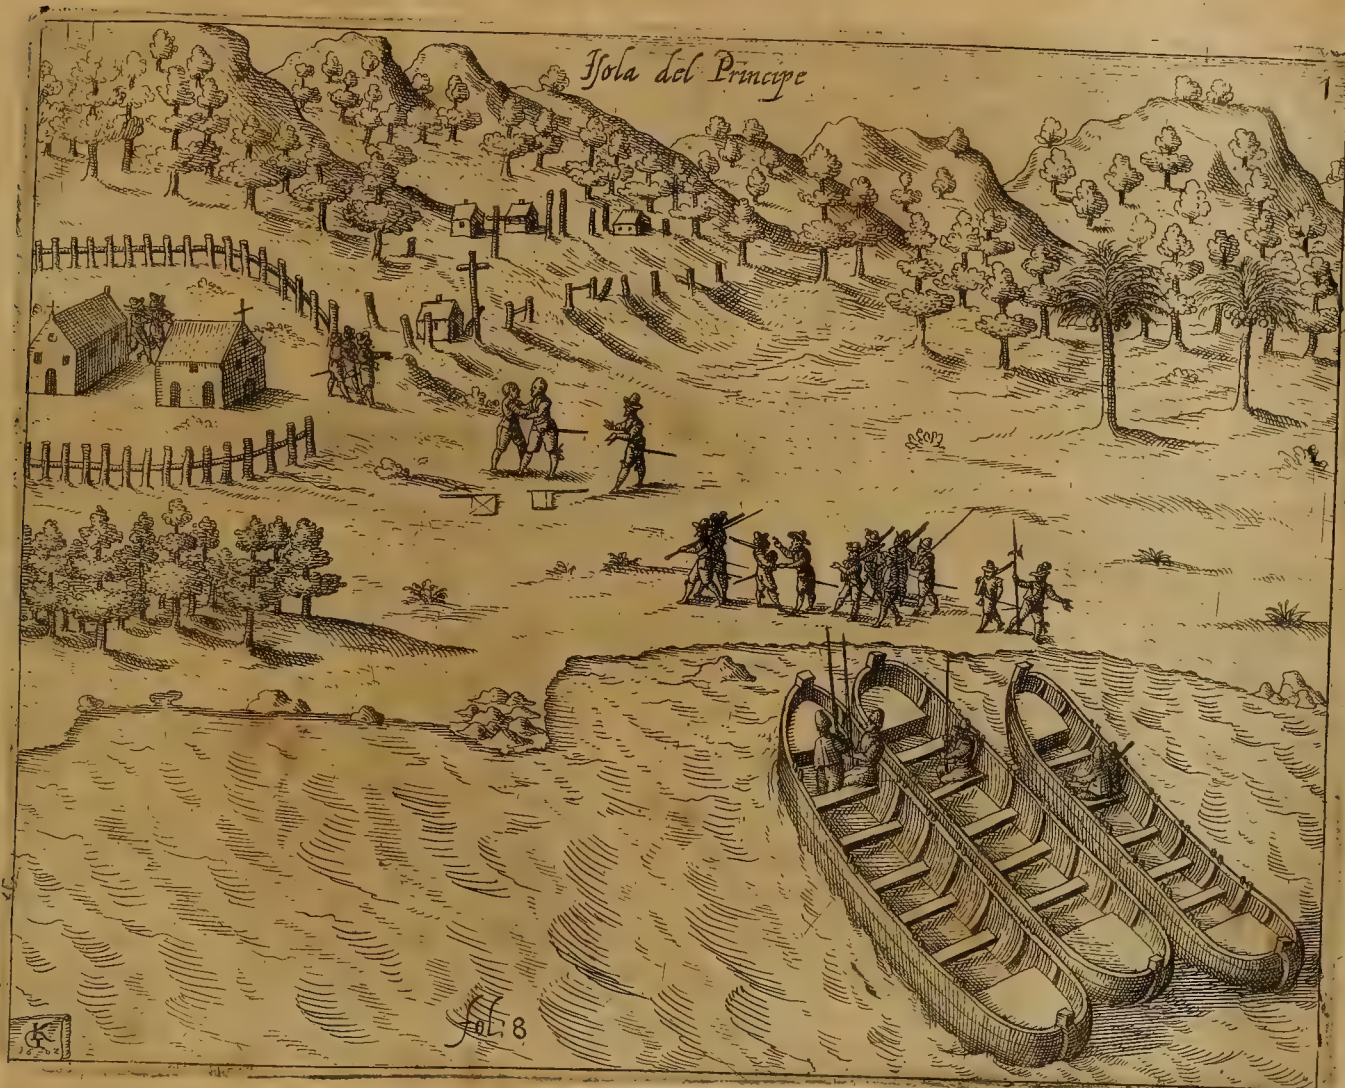 Isola del Principe
1
fol: 8
CK
1602